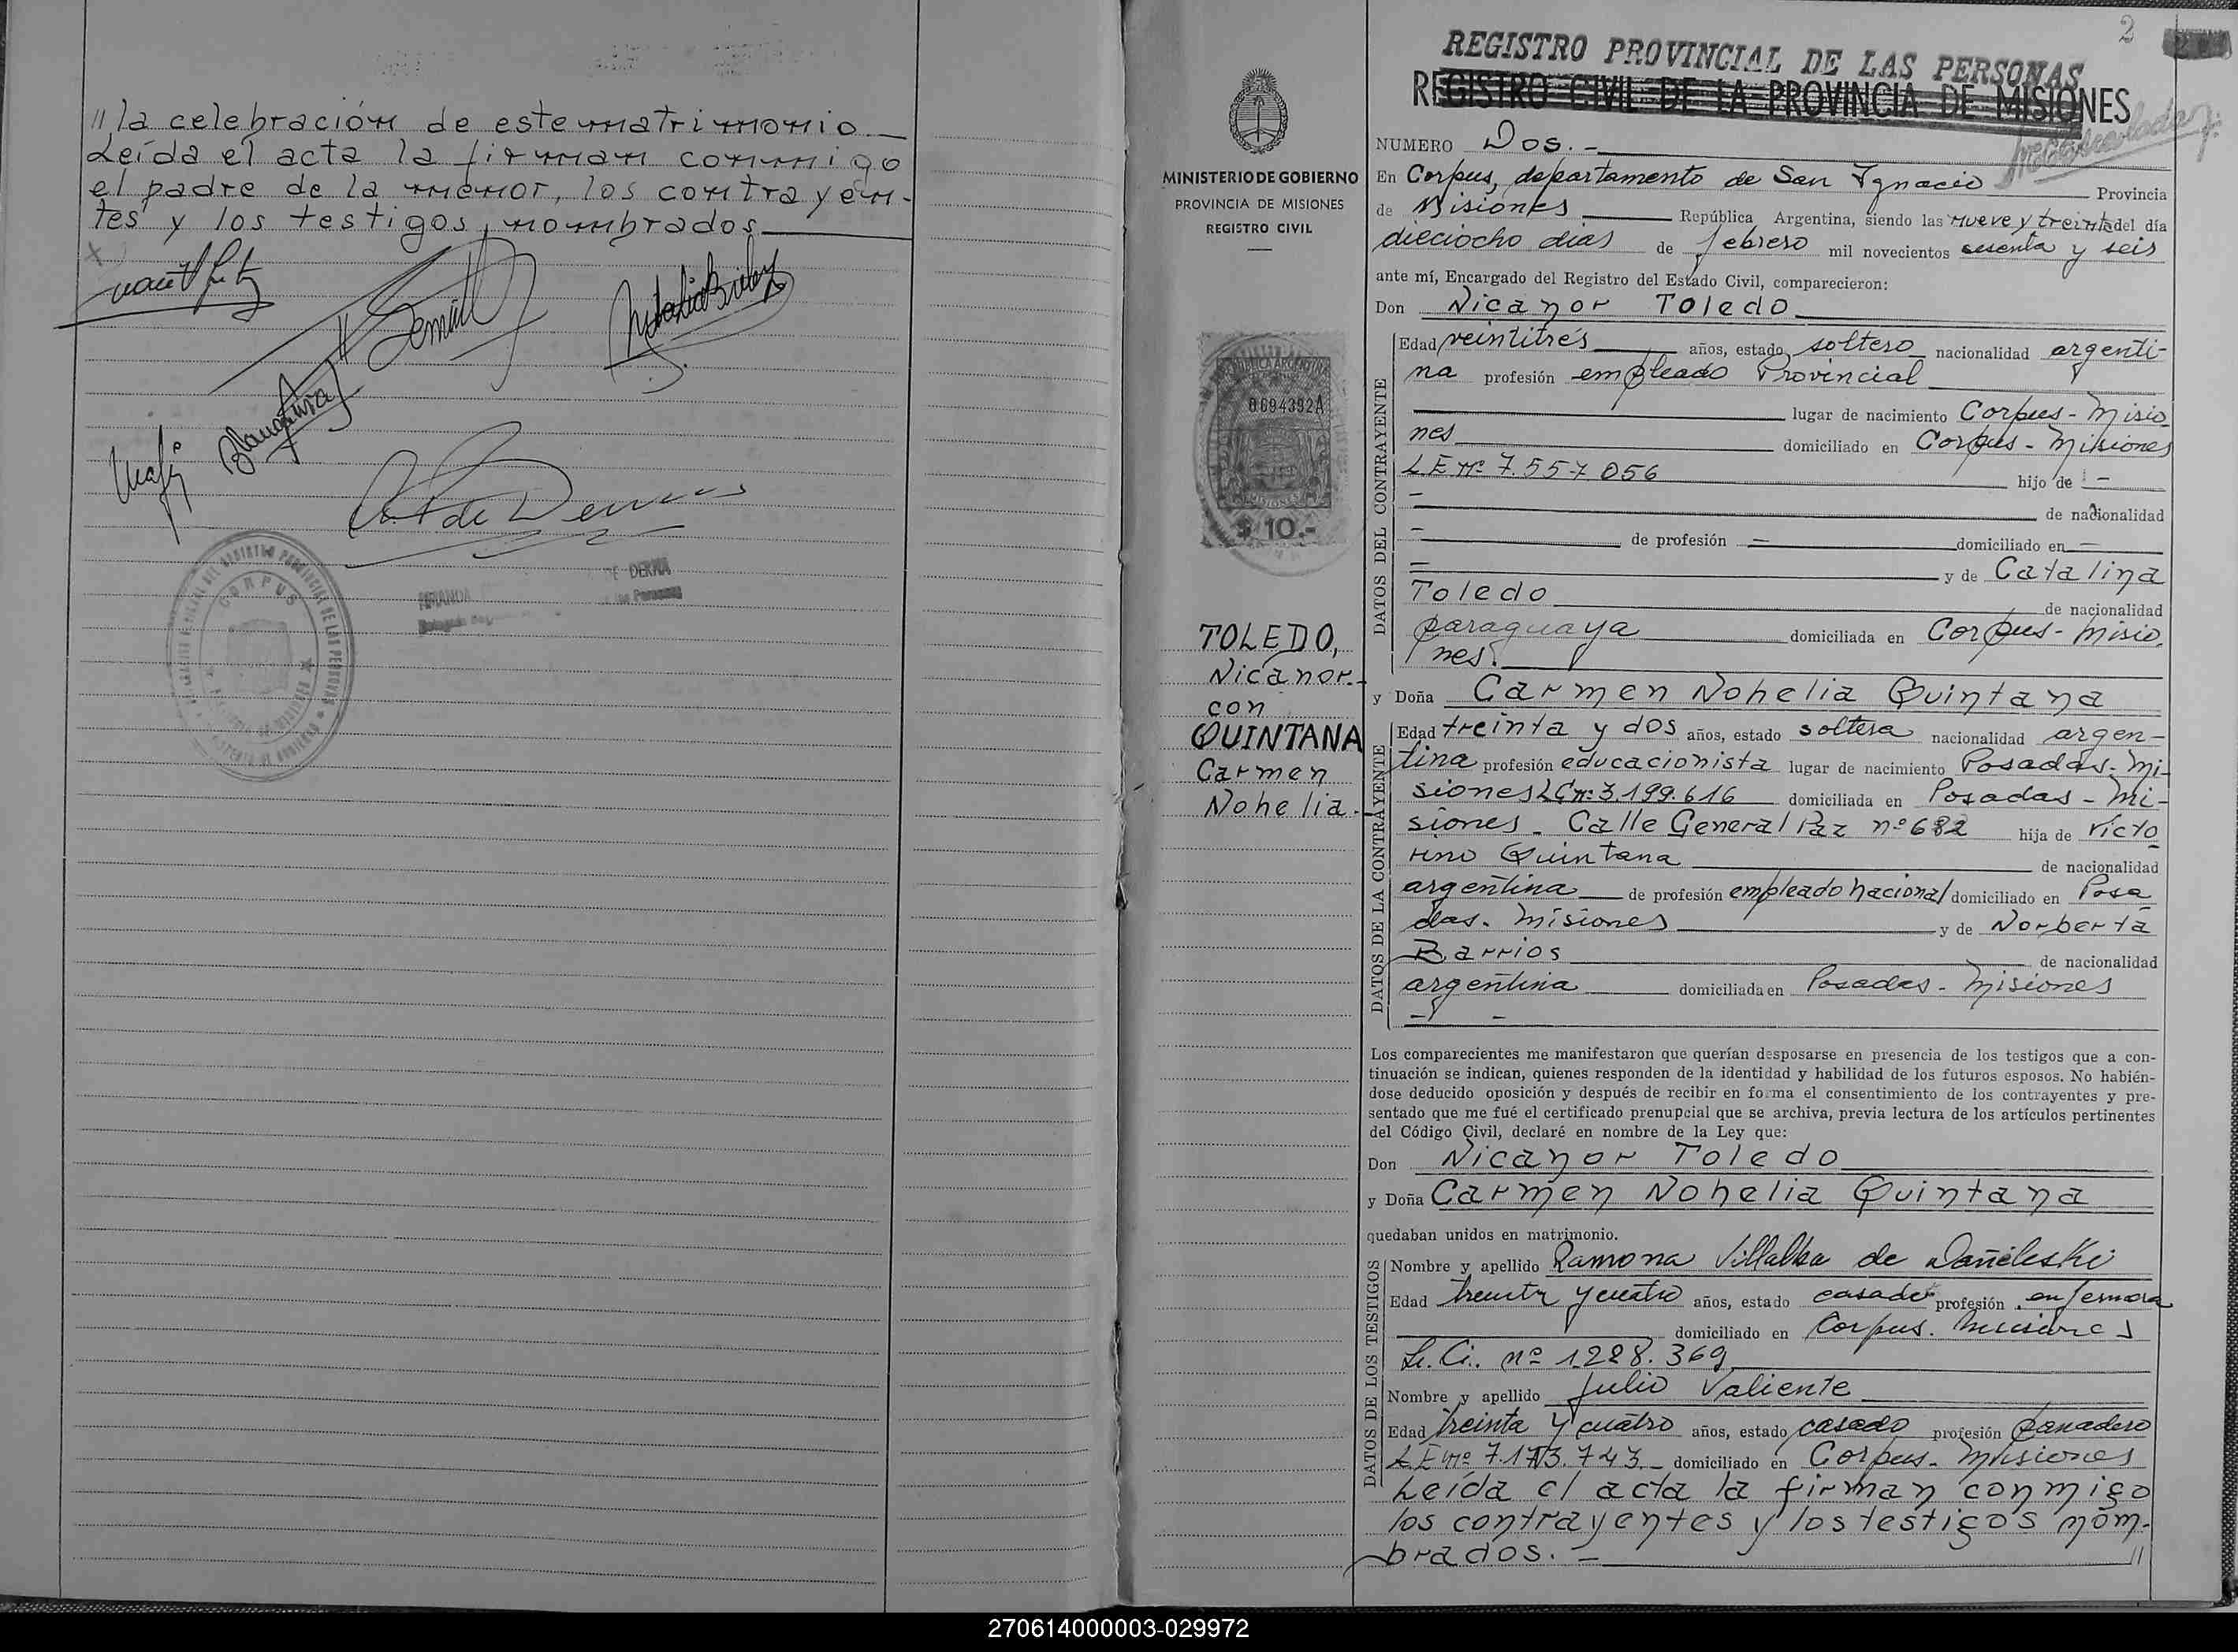 // la celebración de este matrimonio.
Leída el acta la firman conmigo
el padre de la menor, los contrayen-
tes y los testigos nombrados
CORPUS
MIRANDA DE DERNA
2
REGISTRO PROVINCIAL DE LAS PERSONAS
REGISTRO CIVIL DE LA PROVINCIA DE MISIONES
MINISTERIO DE GOBIERNO
PROVINCIA DE MISIONES
REGISTRO CIVIL
REPUBLICA ARGENTINA
0694392A
MISIONES
$ 10.-
TOLEDO,
Nicanor.-
con
QUINTANA
Carmen
Nohelia.-
NUMERO Dos.-
En Corpus, departamento de San Ignacio Provincia
de Misiones República Argentina, siendo las nueve y treinta del día
dieciocho dias de febrero mil novecientos sesenta y seis
ante mí, Encargado del Registro del Estado Civil, comparecieron:
Don Nicanor Toledo
DATOS DEL CONTRAYENTE
Edad veintitrés años, estado soltero nacionalidad argenti-
na profesión empleado Provincial
lugar de nacimiento Corpus - Misio
nes domiciliado en Corpus - Misiones
LE Nº 7.557.056 hijo de -
- de nacionalidad
- de profesión - domiciliado en -
- y de Catalina
Toledo de nacionalidad
paraguaya domiciliada en Corpus - Misio
nes.
y Doña Carmen Nohelia Quintana
DATOS DE LA CONTRAYENTE
Edad treinta y dos años, estado soltera nacionalidad argen-
tina profesión educacionista lugar de nacimiento Posadas - Mi-
siones LC nº 3.199.616 domiciliada en Posadas - Mi-
siones - Calle General Paz nº 682 hija de Victo
rino Quintana de nacionalidad
argentina de profesión empleado nacional domiciliado en Posa
das. Misiones y de Norberta
Barrios de nacionalidad
argentina domiciliada en Posadas - Misiones
- -
Los comparecientes me manifestaron que querían desposarse en presencia de los testigos que a con-
tinuación se indican, quienes responden de la identidad y habilidad de los futuros esposos. No habién-
dose deducido oposición y después de recibir en forma el consentimiento de los contrayentes y pre-
sentado que me fué el certificado prenupcial que se archiva, previa lectura de los artículos pertinentes
del Código Civil, declaré en nombre de la Ley que:
Don Nicanor Toledo
y Doña Carmen Nohelia Quintana
quedaban unidos en matrimonio.
DATOS DE LOS TESTIGOS
Nombre y apellido Ramona Villalba de Dañeleski
Edad treinta y cuatro años, estado casada profesión enfermera
domiciliado en Corpus. Misiones
L. C. nº 1.228.369
Nombre y apellido Julio Valiente
Edad treinta y cuatro años, estado casado profesión panadero
LE nº 7.173.743.- domiciliado en Corpus - Misiones
Leída el acta la firman conmigo
los contrayentes y los testigos nom-
brados. - //
270614000003-029972